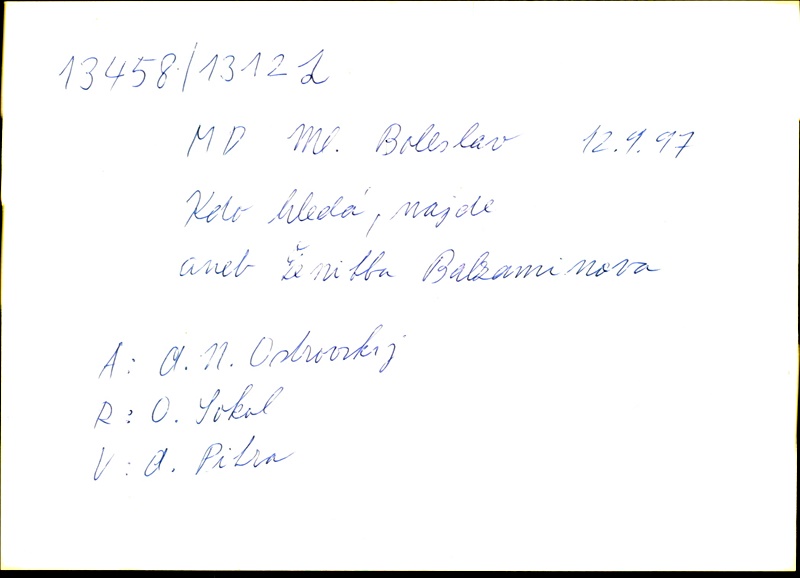 13458/1312 L
MD Ml. Boleslav 12.9.97
Kdo hledá, najde
aneb Ženitba Balzaminova
A: A. N. Ostrovskij
R: O. Sokol
V: A. Pitra